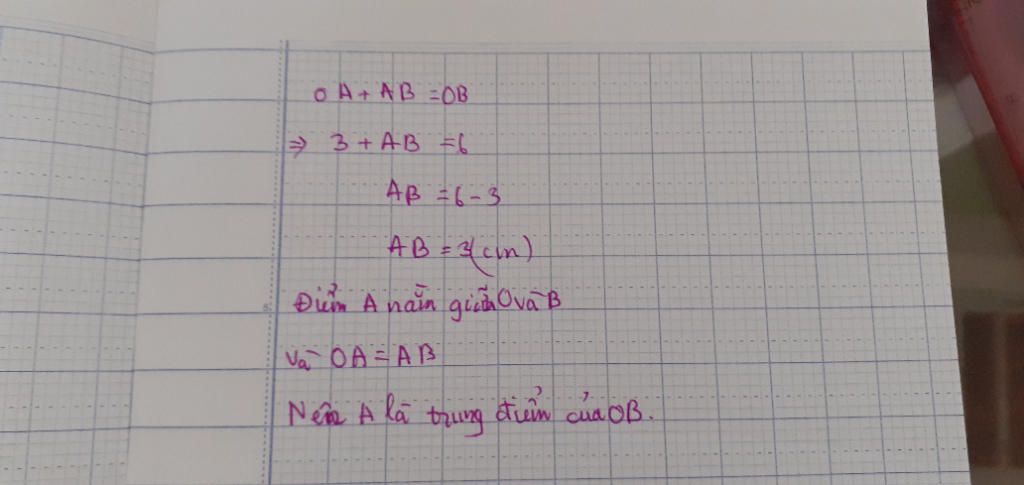 OA + AB = OB
⇒ 3 + AB = 6
AB = 6 - 3
AB = 3(cm)
Điểm A nằm giữa O và B
Và OA = AB
Nên A là trung điểm của OB.